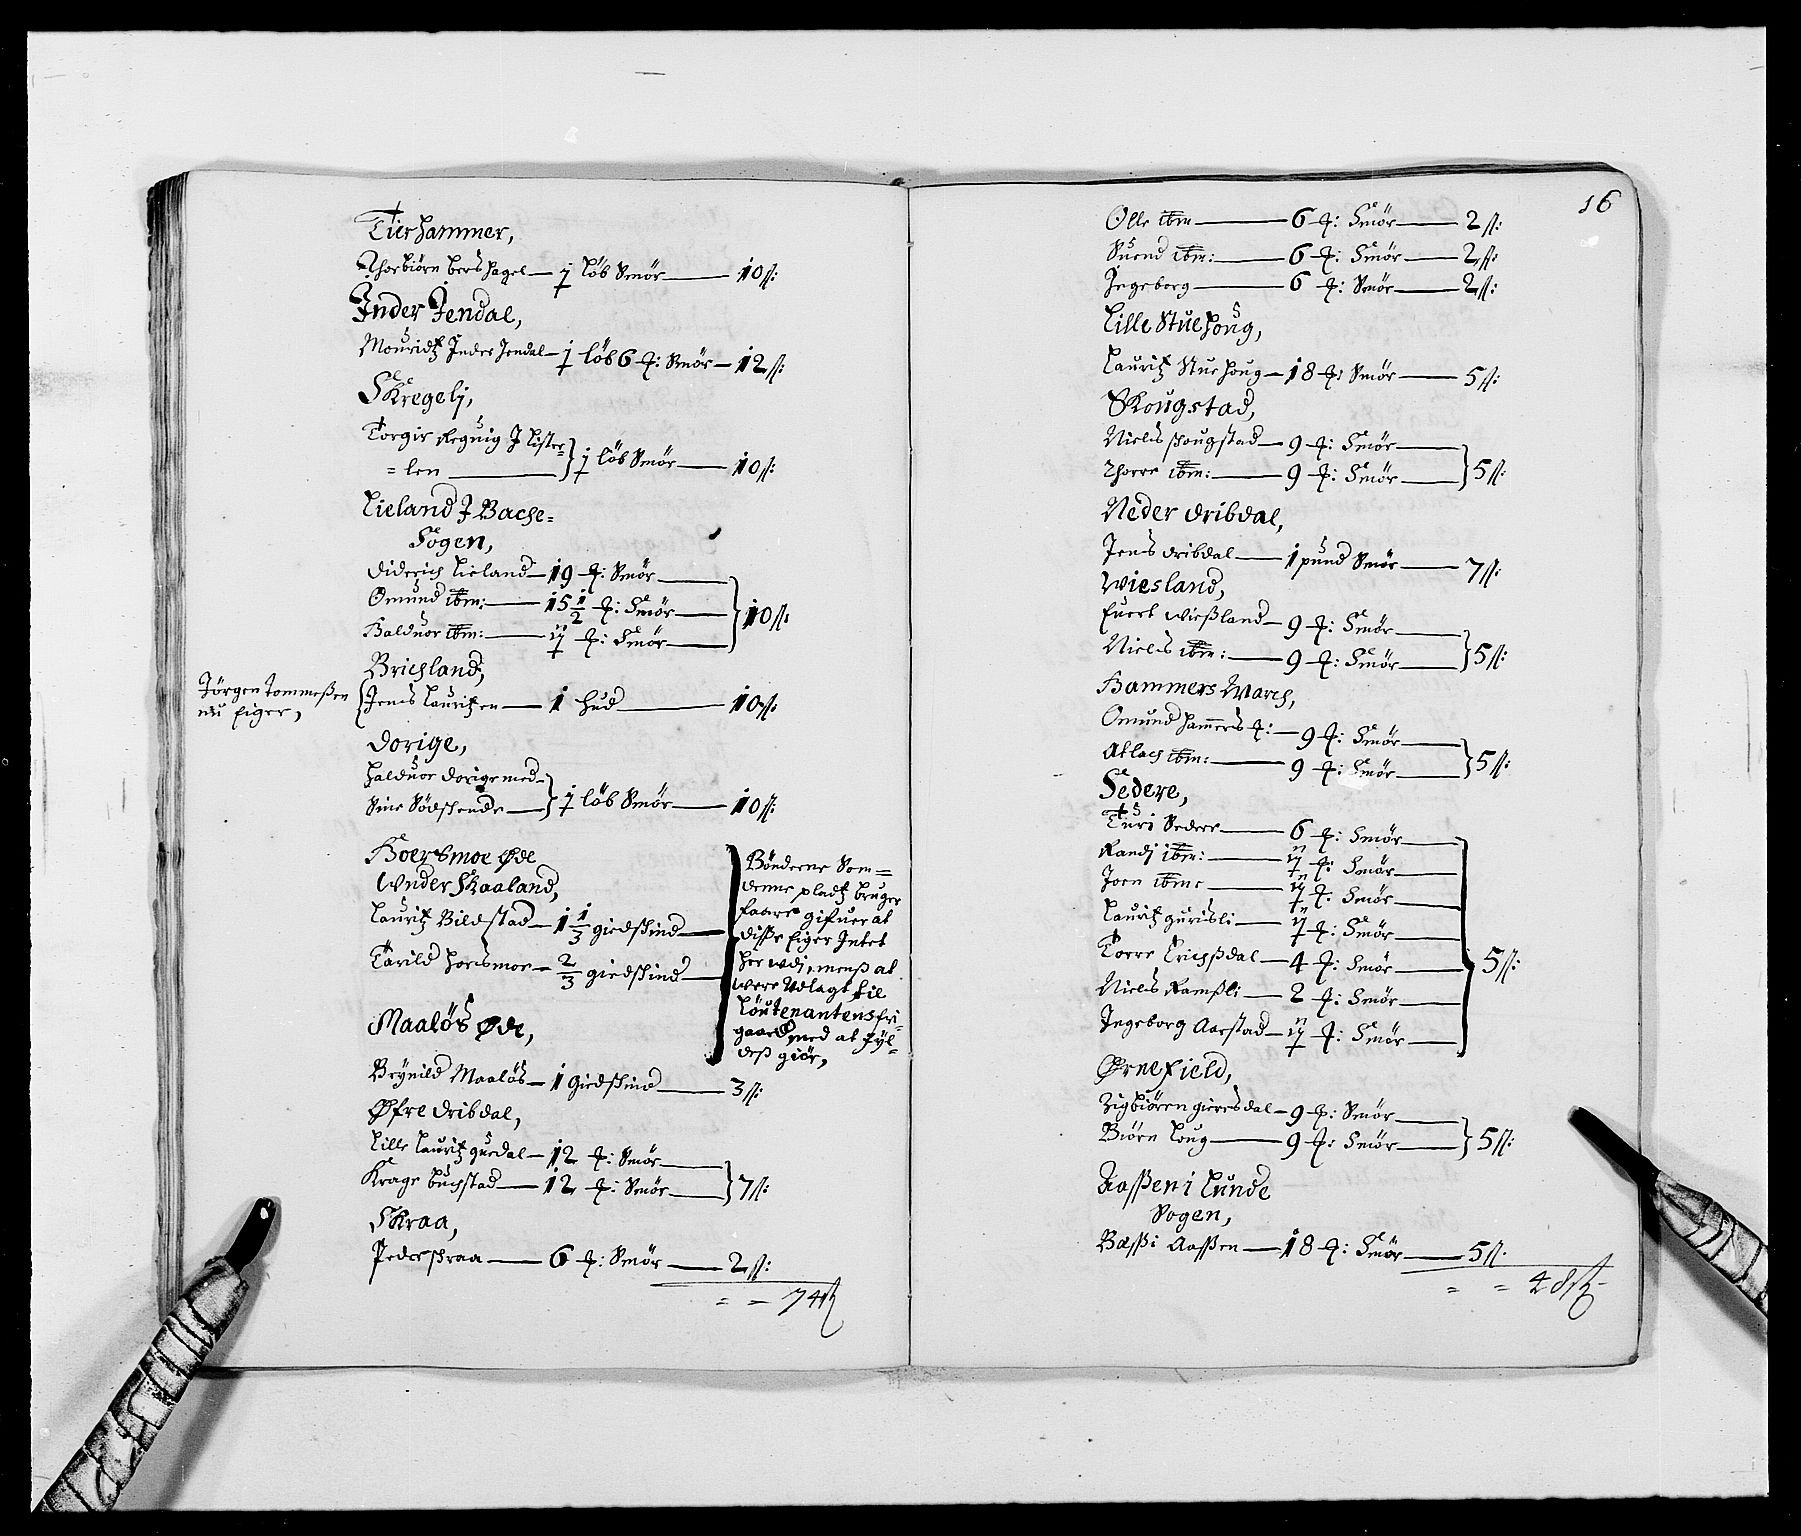 Tierhammer,
Thorbiörn bershagel — 1 löb Smör — 10 ß:
Inder Jendal,
Mouridtz Inder Jendal — 1 löb 6 ℔: Smör — 12 ß:
Skregelj,
Torgier Regnig J Lister=
= len — 1 löb Smör — 10 ß:
Lieland J Bache=
Sogen,
Diderich Lieland — 19 ℔: Smör
Omund ibm: — 15 1/2 ℔: Smör — 10 ß:
Halduor ibm: — ÿ ℔: Smör
Brichland,
Jörgen Tommeßen
nu Eiger,
Jens Lauritzen — 1 hud — 10 ß:
Dorige,
Halduor Dorige med
Sine Södschende — 1 löb Smör — 10 ß:
Hoersmoe Øde
Wnder Skaaland,
Lauritz Bildstad — 1 1/3 giedschind
Tarild Horsmoe — 2/3 giedschind
Bönderne Som=
denne pladtz bruger
faare gifuer at
diße Eiger Intet
her udj, menß at
were Udlagt til
Löutenantens fri=
gaard med at fÿl=
deß giör,
Maalös Øde,
Brÿnild Maalös — 1 Giedschind — 3 ß:
Øfre Dribdal,
Lille Lauritz gusdal — 12 ℔: Smör
Krage buchstad — 12 ℔: Smör — 7 ß:
Skraa,
Peder Skraa — 6 ℔: Smör — 2 ß:
= – 74 ß
16
Olle ibm — 6 ℔: Smör — 2 ß:
Suend ibm: — 6 ℔: Smör — 2 ß:
Ingeborg — 6 ℔: Smör — 2 ß:
Lille Stuehoug,
Lauritz Stuehoug — 18 ℔: Smör — 5 ß:
Skougstad,
Niels Skougstad — 9 ℔: Smör
Thorre ibm: — 9 ℔: Smör — 5 ß:
Neder Dribdal,
Jens Dribdal — 1 pund Smör — 7 ß:
Wiesland,
Euert Wießland — 9 ℔: Smör
Niels ibm: — 9 ℔: Smör — 5 ß:
Hammers March,
Omund hammers ℔: — 9 ℔: Smör
Atlach ibm: — 9 ℔: Smör — 5 ß:
Sedere,
Turi Sedere — 6 ℔: Smör
Randj ibm: — ÿ ℔: Smör
Joen ibm: — ÿ ℔: Smör
Lauritz gurisli — ÿ ℔: Smör
Torre Erichßdal — 4 ℔: Smör — 5 ß:
Niels Ramßli — 2 ℔: Smör
Ingeborg Aarstad — ÿ ℔: Smör
Ørnefield,
Zigbiören gieresdal — 9 ℔: Smör
Biörn Loug — 9 ℔: Smör — 5 ß:
Aaßen i Lunde
Sogen,
Baßi Aaßen — 18 ℔: Smör — 5 ß.
= = 48 ß